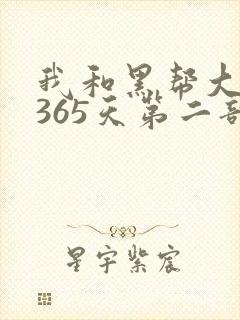 我和黑帮大
365天第二部
星宇紫宸